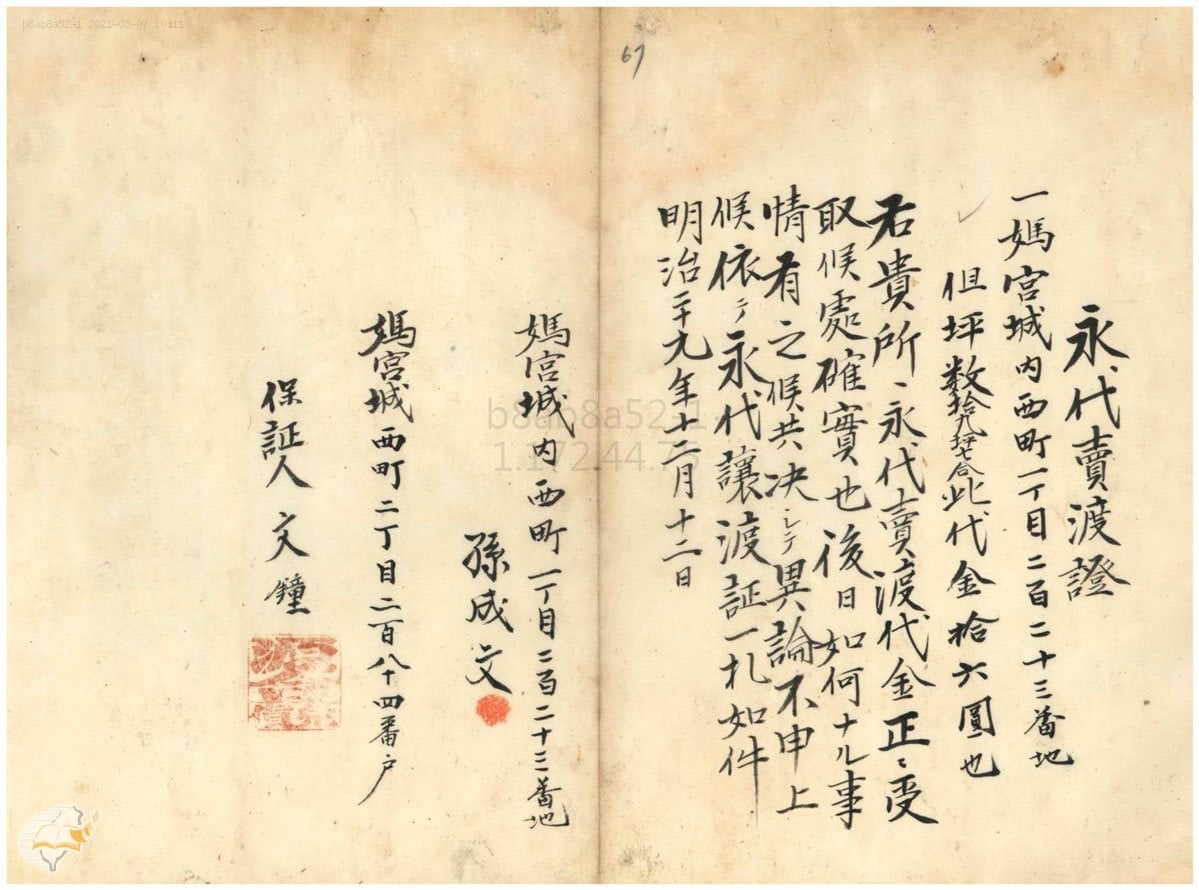 b8ab8a52-1 2021-03-07 10:11
67
永代賣渡證
一媽宮城内西町一丁目二百二十三番地
但坪数拾九坪七合此代金拾六圓也
右貴所ヘ永代賣渡代金正ニ受
取候處確實也後日如何ナル事
情有之候共决シテ異論不申上
候依テ永代讓渡証一札如件
明治二十九年十二月十二日
媽宮城内西町一丁目二百二十三番地
孫成文
媽宮城西町二丁目二百八十四番户
保証人文鐘
b8ab8a52-1
1.172.44.75